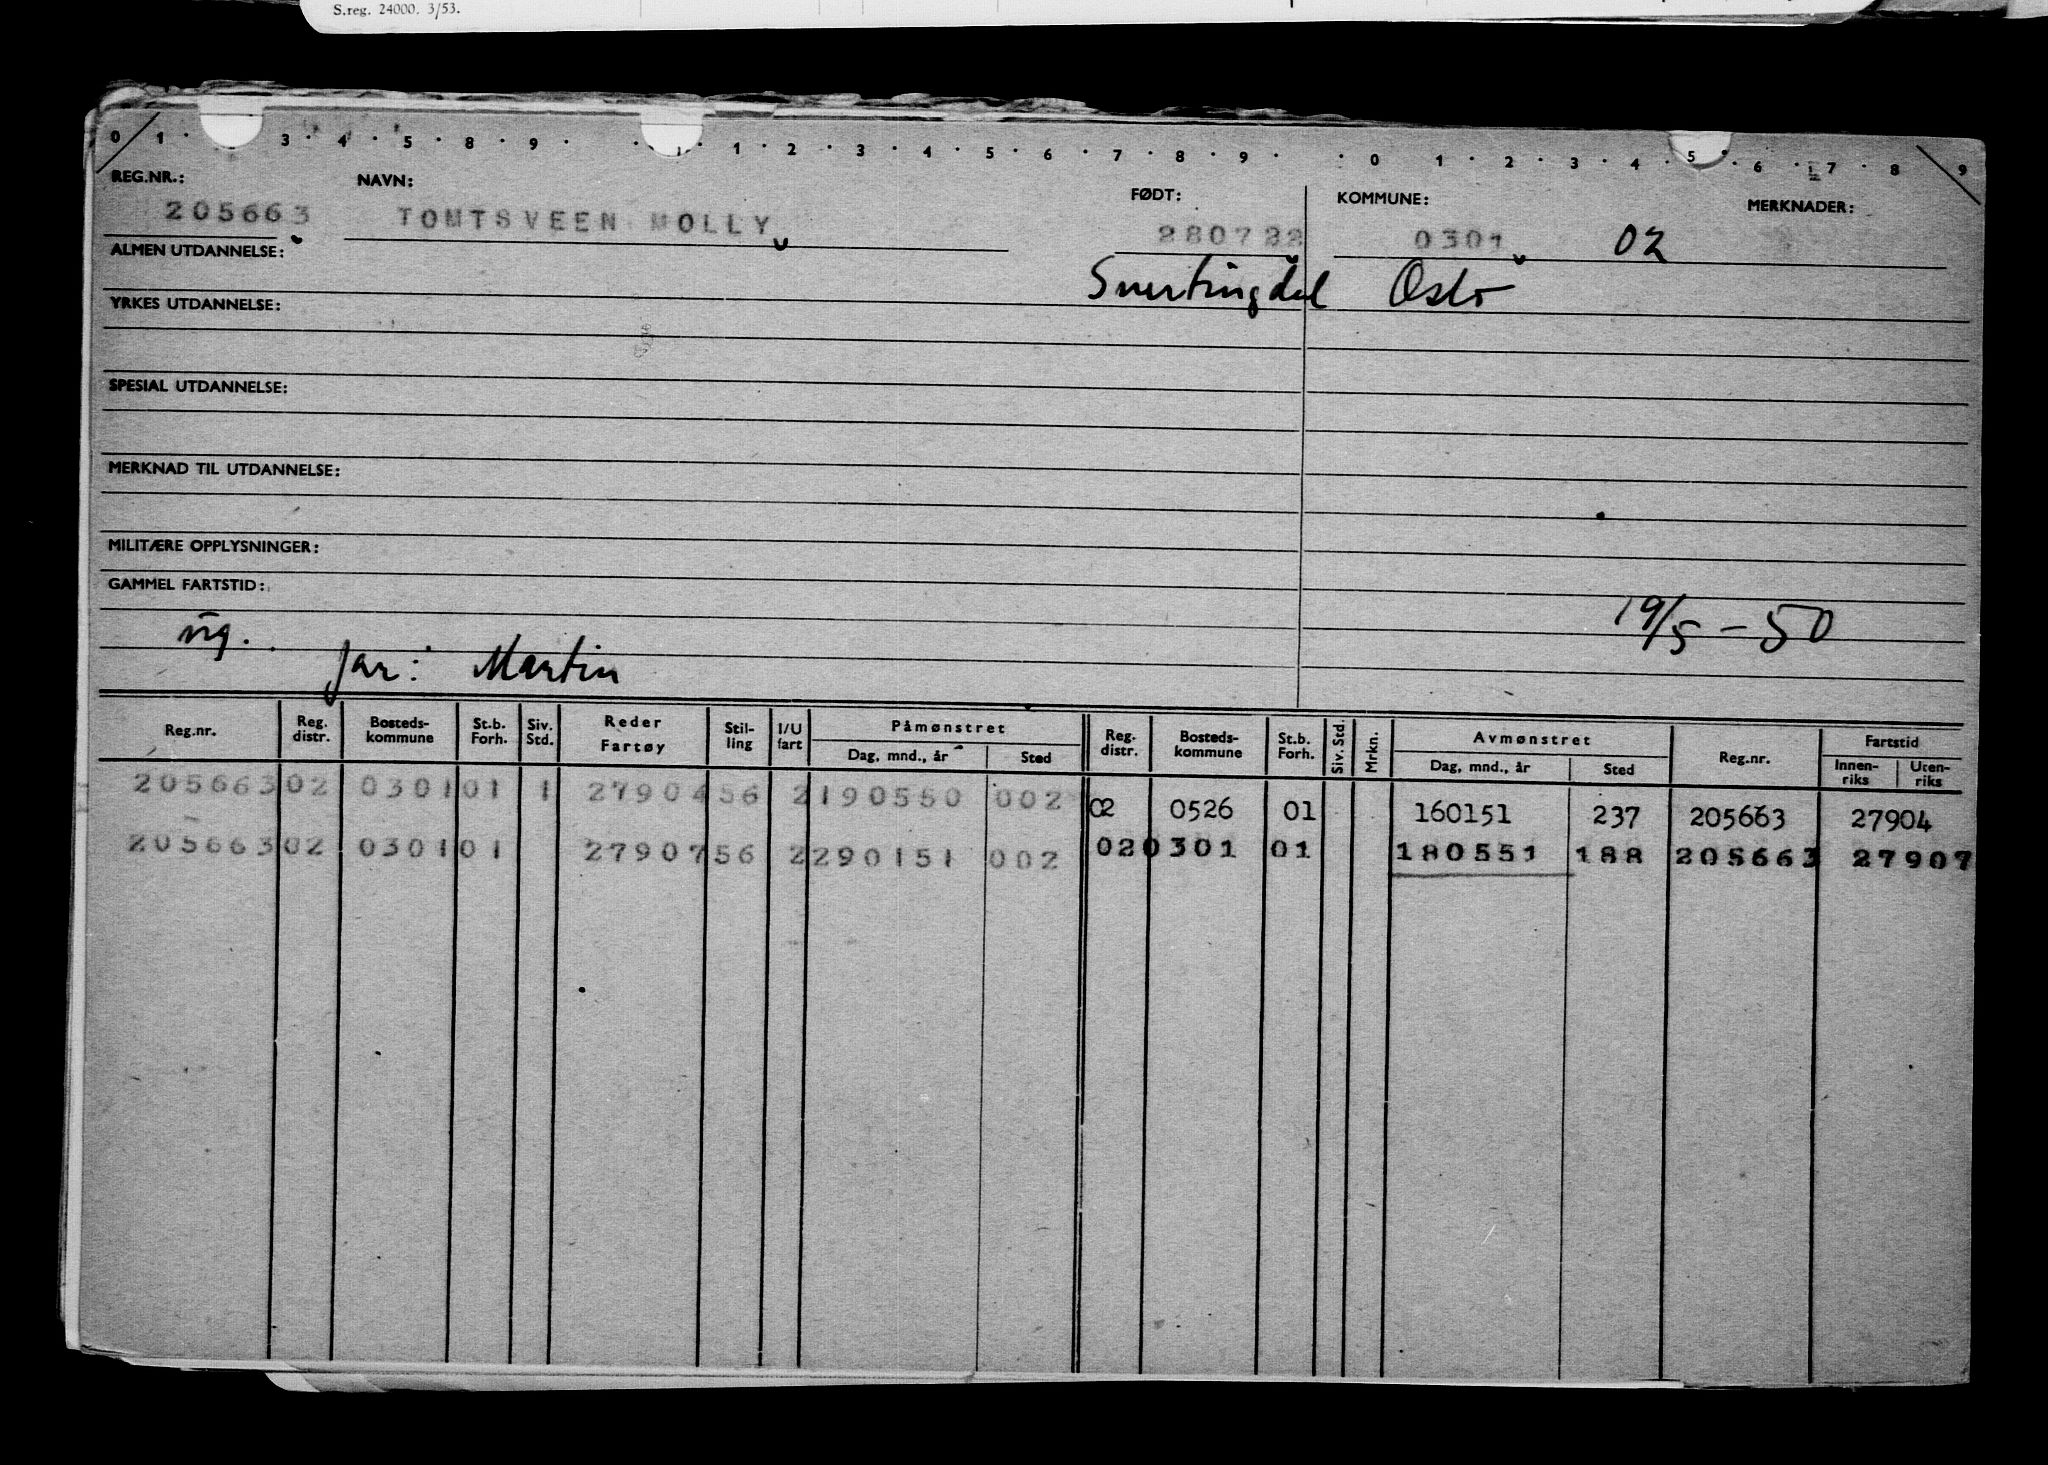 S.reg. 24000. 3/53.
0 1 · 3 · 4 · 5 · 8 · 9 · · 1 · 1 · 2 · 3 · 4 · 5 · 6 · 7 · 8 · 9 · · 0 · 1 · 2 · 3 · 4 · 5 · 6 · 7 · 8 · 9
REG.NR.: NAVN: FØDT: KOMMUNE: MERKNADER:
205663 TOMTSVEEN MOLLY 280722 0301 02
ALMEN UTDANNELSE:
Snertingdal Oslo
YRKES UTDANNELSE:
SPESIAL UTDANNELSE:
MERKNAD TIL UTDANNELSE:
MILITÆRE OPPLYSNINGER:
GAMMEL FARTSTID:
19/5 - 50
ug.
far: Martin
Reg.nr. Reg. distr. Bosteds-kommune St.b. Forh. Siv. Std. Reder Fartøy Stil-ling I/U fart Påmønstret Dag, mnd., år Sted Reg. distr. Bosteds-kommune St.b. Forh. Siv. Std. Mrkn. Avmønstret Dag, mnd., år Sted Reg.nr. Fartstid Innen-riks Uten-riks
205663 02 0301 01 1 27904 56 2 190550 002 02 0526 01 160151 237 205663 27904
205663 02 0301 01 27907 56 2 290151 002 02 0301 01 180551 188 205663 27907